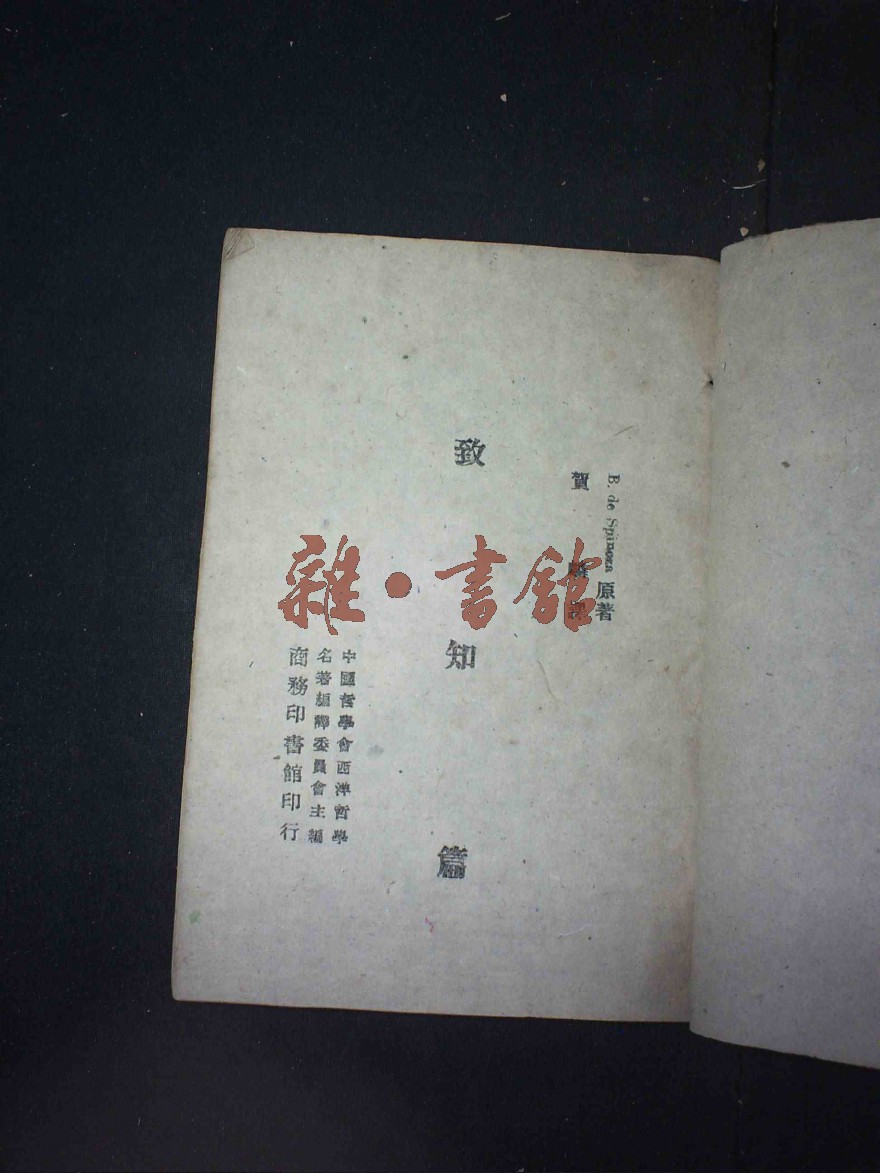 B. de Spinoza 原著
賀 麟 譯
致知篇
中國哲學會西洋哲學
名著編譯委員會主編
商務印書館印行
雜·書館